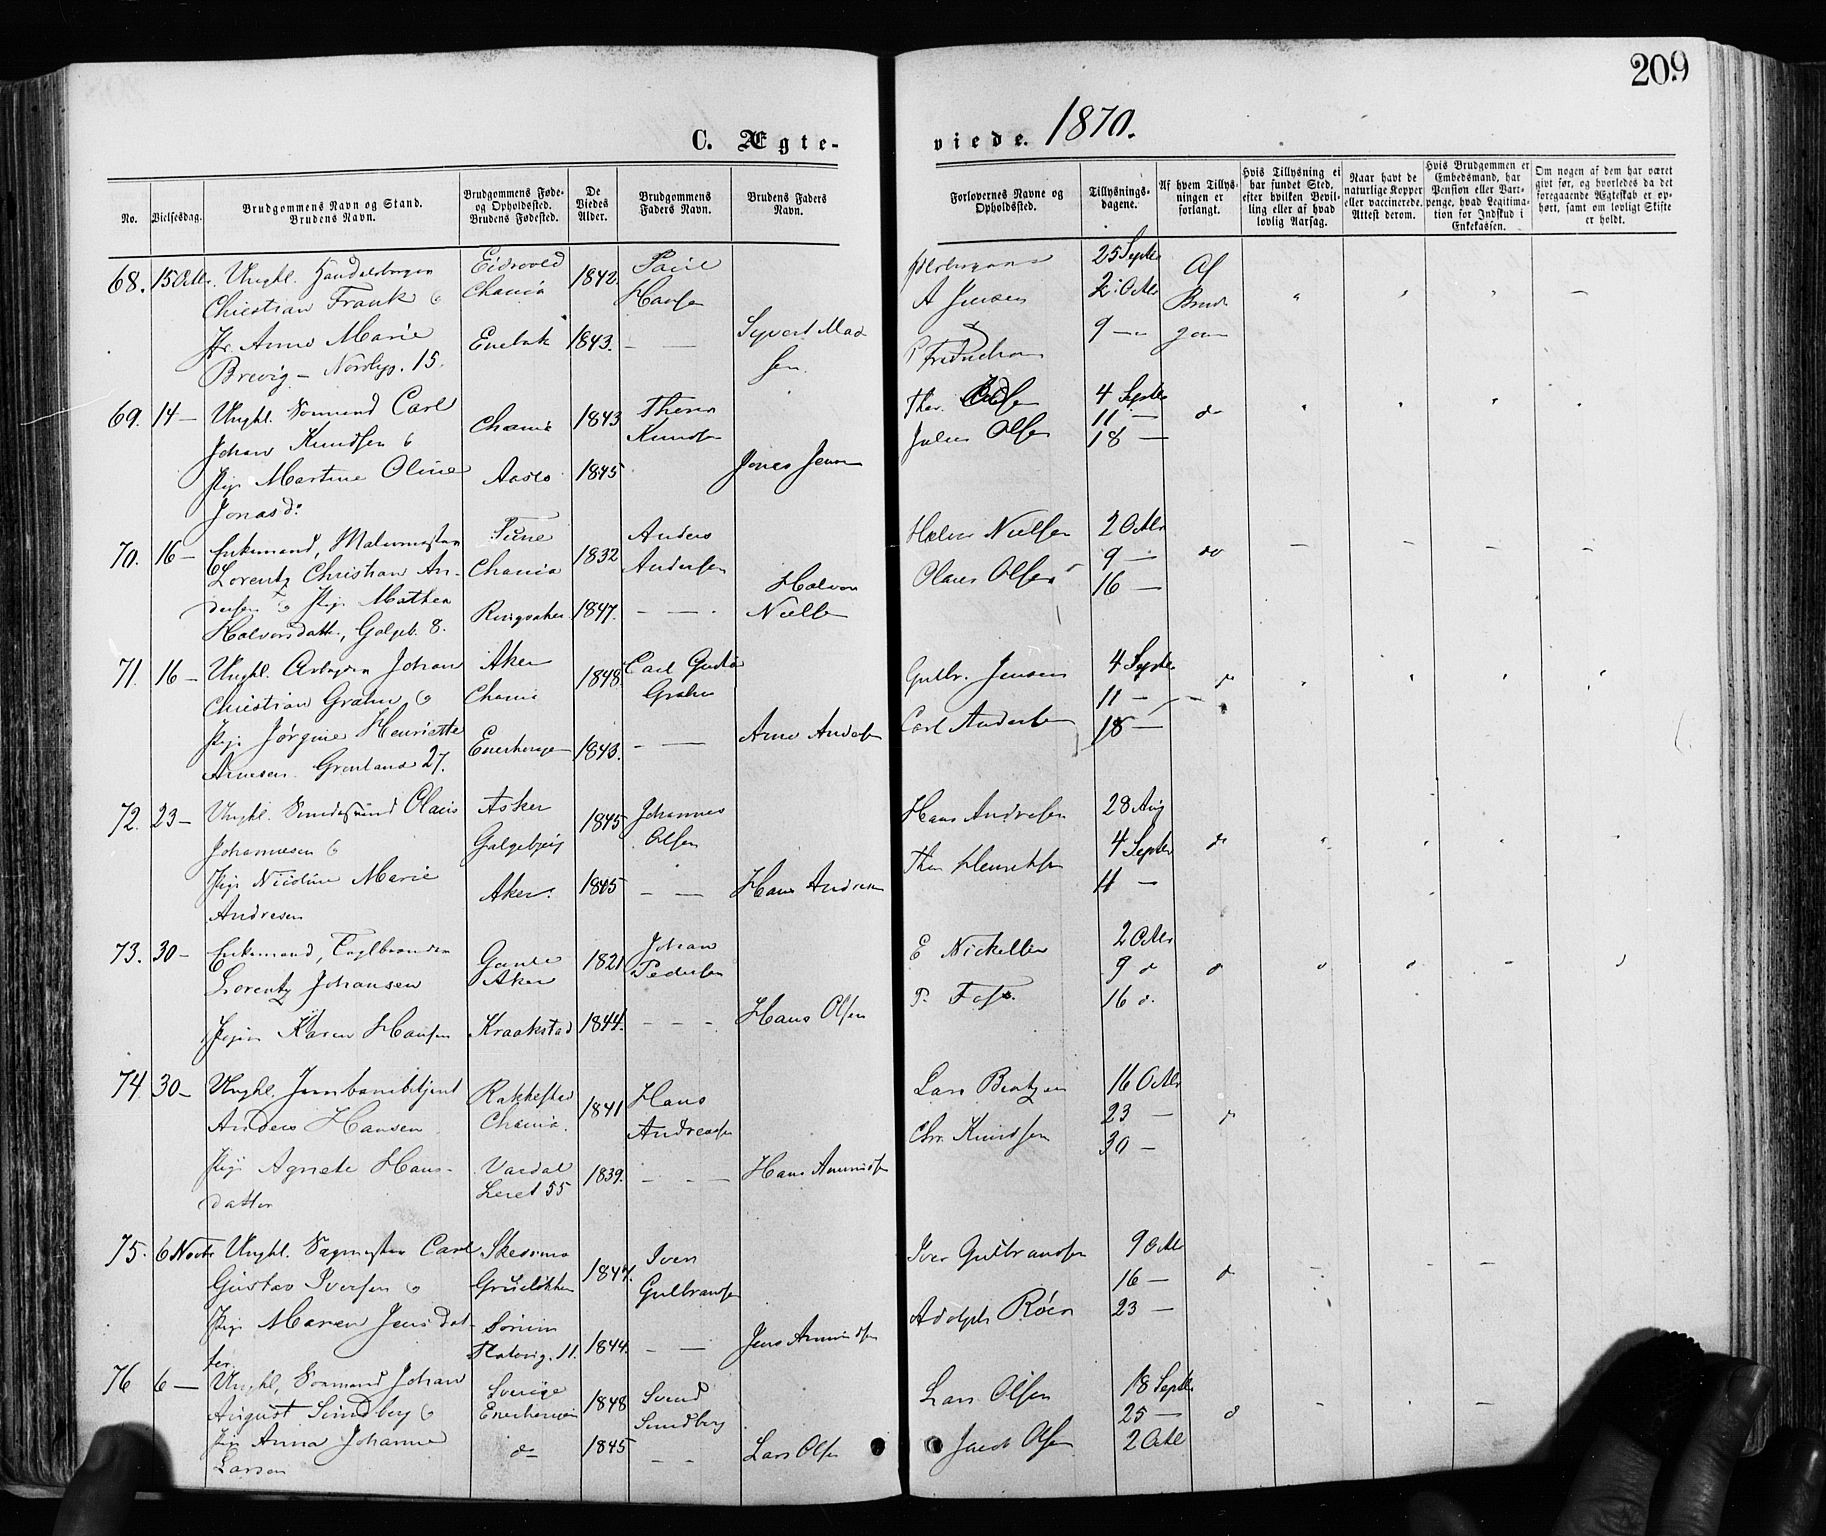 209
C. Ægte-
viede. 1870.
No.
Vielsesdag.
Brudgommens Navn og Stand.
Brudens Navn.
Brudgommens Føde-
og Opholdssted.
Brudens Fødested.
De
Viedes
Alder.
Brudgommens
Faders Navn.
Brudens Faders
Navn.
Forlovernes Navne og
Opholdssted.
Tillysnings-
dagene.
Af hvem Tillys-
ningen er
forlangt.
Hvis Tillysning ei
har fundet Sted,
efter hvilken Bevil-
ling eller af hvad
lovlig Aarsag.
Naar havt de
naturlige Kopper
eller vaccinerede.
Attest derom.
Hvis Brudgommen er
Embedsmand, har
Pension eller Vart-
penge, hvad Legitima-
tion for Indskud i
Enkekassen.
Om nogen af dem har været
givt før, og hvorledes da det
foregaaende Ægteskab er op-
hørt, samt om lovligt Skifte
er holdt.
68. 15 Octbr. Ungkl.
Christian Frank
Eidsvold
Chania
1842.
Hansen
Anne Marie
Brevig - Nordbyg. 15.
Enebak
1843. — —
Syvert Mad
sen.
A Jensen
25 Septbr
2 Octbr
9 —
Af
Brud
gom
69. 14 — Ungkl. Sømand Carl
Johan Knudsen
Chania
1843
Knudsen
Pige Martine Oline
Jonasd:
1845
Jonas Jensen
Thor.
Julius Olsen
4 Septbr
11 —
18 —
do
70. 16 — Enkemand, Malermester
Lorentz Christian An-
dersen & Pige Mathea
Halvorsdatter, Galgeb. 8.
Tune
Chania
Ringsaker
1832
1847. — —
Anders
Andersen
Halvor
Nielsen
Halvor Nielsen
Olaus Olsen
2 Octbr
9 —
16 —
do
71. 16 — Ungkl. Johan
Christian Grahn
Pige Jørgine Henriette
Arnesen. Grønland 27.
Aker
Chania
Enerhaugen
1848.
1843. — —
Carl Gustav
Grahn
Arne Andersen
Gulbr. Jensen
Carl Andersen
4 Septbr
11 —
18 —
72. 23 — Ungkl. Smedesvend Olaus
Johannesen
Pige Nicoline Marie
Andresen
Asker
Galgebjerg
Aker.
1845
1845 — —
Johannes
Olsen
Hans Andresen
Hans Andresen
Thor Henriksen
28 Aug
4 Septbr
11 —
73. 30 — Enkemand, Teglbrænder
Lorentz Johansen
Pigen Karen Hansen
Aker
Kraakstad
1821
1844. — — —
Johan
Pedersen
Hans Olsen
E Nickelsen
P. Foss.
2 Octbr
9 do
16 do.
74. 30 — Ungkl. Jernbanebetjent
Anders Hansen
Pige Agnete Hans-
datter
Rakkestad
Chania.
Vardal
Leret 55
1841
1839. — — —
Hans
Andreasen
Hans Amundsen
Lars Bentzen
Chr. Knudsen
16 Octbr
23 —
30 —
75. 6 Novbr Ungkl. Sagmester Carl
Gustav Iversen
Pige Maren Jensdat-
ter
Skedsmo
Grüeløkken
Sørum
1844.
1844. — —
Iver
Gulbransen
Jens Amundsen
Iver Gulbransen
Adolph Røen
9 Octbr
16 —
23 —
76 6 — Ungkl, Sømand Johan
August Sundberg
Pige Anna Johanne
Larsen
Sverige
Enerhaugen
do
1848
1845 — —
Svend
Sundberg
Lars Olsen
Lars Olsen
Jacob Olsen
18 Septbr
25 —
2 Octbr